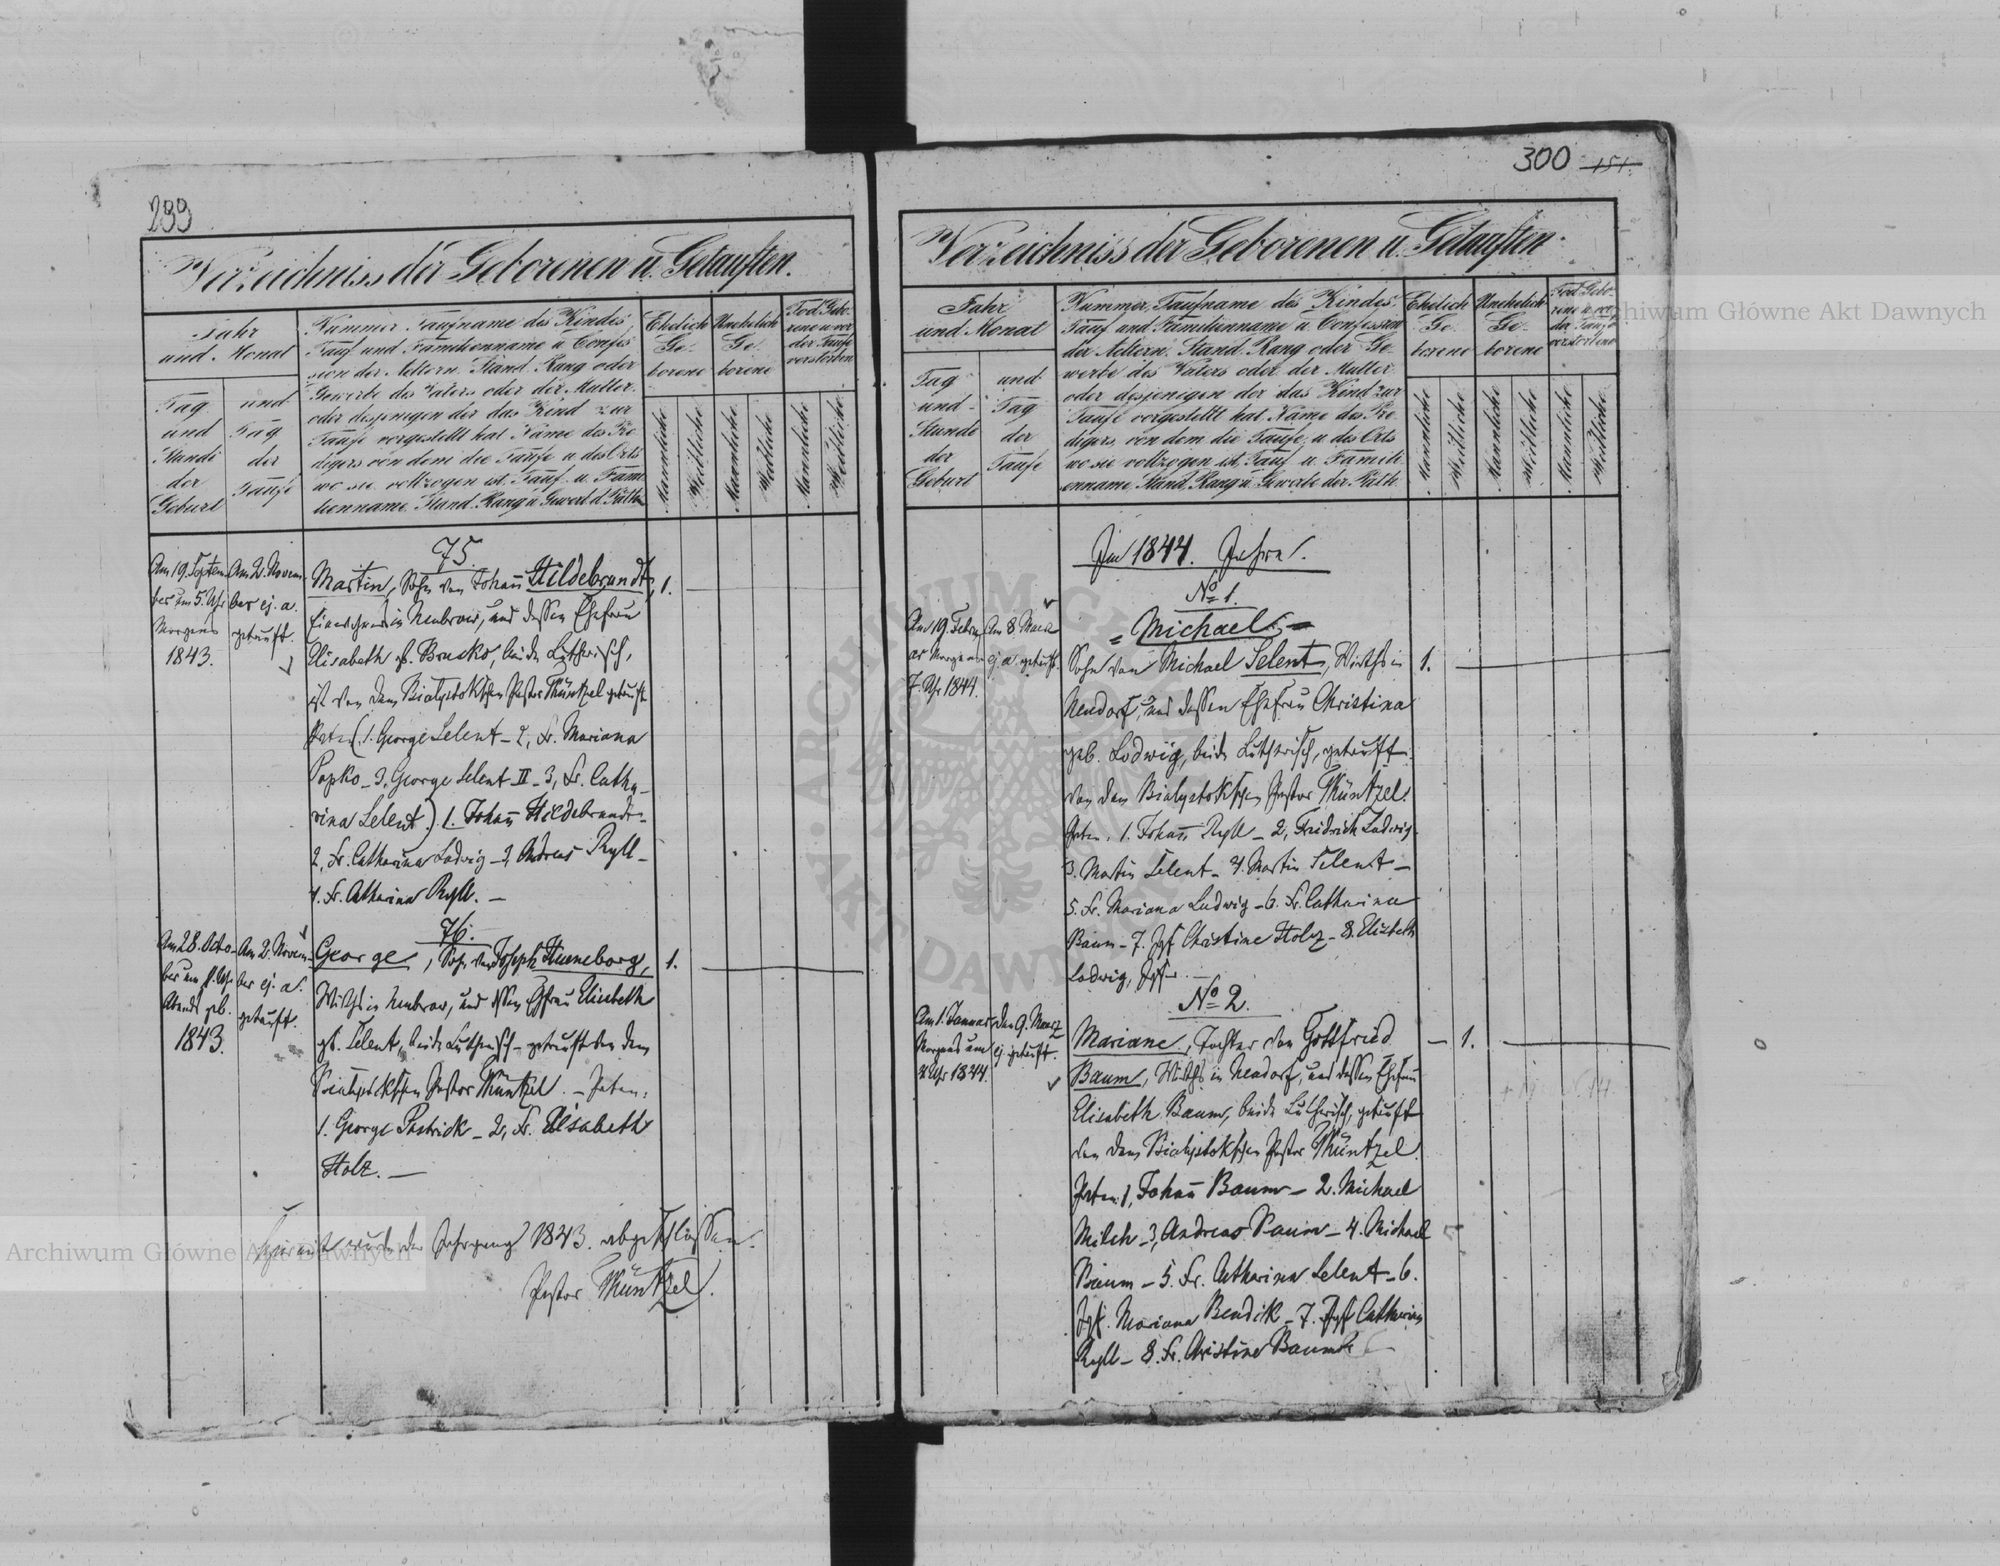 299
Verzeichniss der Geborenen u. Getauften.
Jahr
und Monat
Tag
und
Stunde
der
Geburt
und
Tag
der
Taufe
Nummer Taufname des Kindes
Tauf und Familienname u Confes
sion der Aeltern. Stand Rang oder
Gewerbe des Vaters oder der Mutter
oder desjenigen der das Kind zur
Taufe vorgestellt hat Name des Pre
digers von dem die Taufe u des Orts
wo sie vollzogen ist Tauf u Fami
lienname Stand Rang u Gewerb d. Path
Ehelich
Ge
borene
Unehelich
Ge
borene
Tod Gebo-
rene u vor
der Taufe
verstorben
Männliche
Weibliche
Männliche
Weibliche
Männliche
Weibliche
Am 19. Septem-
ber um 5. Uhr
Morgens
1843.
Am 2. Novem-
ber ej. a.
getauft.
75
Martin, Sohn von Johann Hildebrandt, 1.
in Neubrow, und dessen Ehefrau
Elisabeth gb. Brusko, beide Lutherisch,
ist von dem Bialystokschen Pastor Müntzel getauft
Paten (1. George Selent - 2, Fr. Mariana
Popko - 3, George Selent II - 3, Fr. Catha-
rina Selent.) 1. Johann Hildebrandt -
2, Fr. Catharina Ladwig - 3 Andreas Ryll -
4. Fr. Catharina Ryll. -
Am 28. Octo-
ber um Uhr
Abends geb.
1843.
Am 2. Novem-
ber ej. a.
getauft.
76.
George, Sohn von Joseph Huneborg, 1.
Wirths in Neubrow, und dessen Ehefrau Elisabeth
gb. Selent, beide Lutherisch - getauft von dem
Bialystokschen Pastor Müntzel. - Paten:
1. George Pastrick - 2, Fr. Elisabeth
Holz. -
Hiermit wurde der Jahrgang 1843. abgeschlossen.
Pastor Müntzel.
300 151.
Verzeichniss der Geborenen u. Getauften.
Jahr
und Monat
Tag
und
Stunde
der
Geburt
und
Tag
der
Taufe
Nummer, Taufname des Kindes
Tauf und Familienname u Confession
der Aeltern. Stand Rang oder Ge-
werbe des Vaters oder der Mutter
oder desjenigen der das Kind zur
Taufe vorgestellt hat Name des Pre
digers, von dem die Taufe u des Orts
wo sie vollzogen ist, Tauf u Famili
enname, Stand, Rang u Gewerbe der Path
Ehelich
Ge
borene
Unehelich
Ge
borene
Tod Gebo-
rene u vor
der Taufe
verstorbene
Männliche
Weibliche
Männliche
Weibliche
Männliche
Weibliche
Im 1844. Jahre.
No 1.
Am 19. Febru
ar Morgens
7. Uhr 1844.
Am 8. Maerz
ej. a. getauft.
Michael
Sohn von Michael Selent, Wirths in 1.
Neudorf, und dessen Ehefrau Christina
geb. Lodwig, beide Lutherisch, getauft
von dem Bialystokschen Pastor Müntzel.
Paten. 1. Johann Ryll - 2, Fridrich Ladwig -
3. Martin Selent - 4. Martin Selent -
5. Fr. Mariana Ludwig - 6. Fr. Catharina
Baum - 7. Jgf Christine Holz - 8. Elisabeth
Lodwig, Jgfr. -
No 2.
Am 1. Januar
Morgens um
4 Uhr 1844.
den 9. Maerz
ej. getauft.
Mariane, Tochter von Gottfried - 1.
Baum, Wirths in Neudorf, und dessen Ehefrau
Elisabeth Baum, beide Lutherisch, getauft
von dem Bialystokschen Pastor Müntzel.
Paten: 1, Johann Baum - 2. Michael
Milch - 3, Andreas Baum - 4. Michael
Baum - 5. Fr. Catharina Selent - 6.
Jgf. Mariana Bendik - 7. Jgf Catharina
Ryll - 8. Fr. Christine Baum
Archiwum Główne Akt Dawnych
Archiwum Główne Akt Dawnych
ARCHIWUM GŁÓWNE AKT DAWNYCH